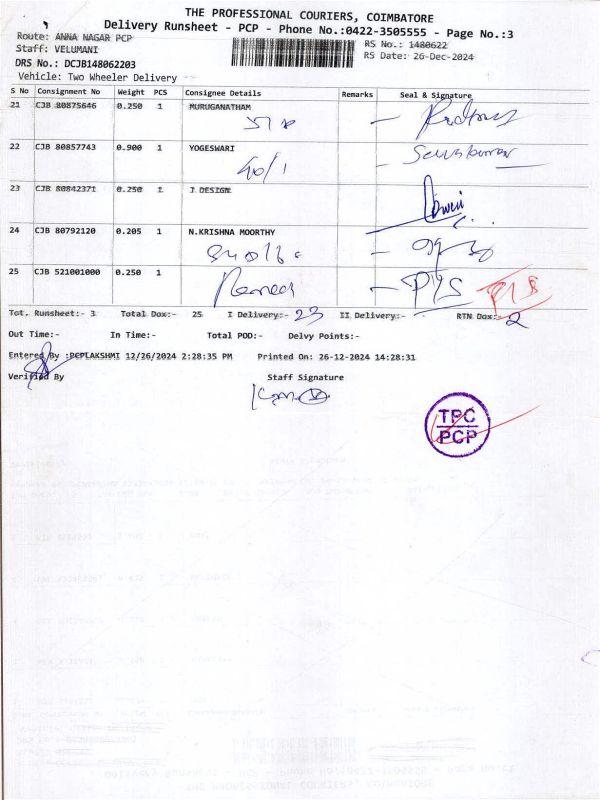 THE PROFESSIONAL COURIERS, COIMBATORE
Delivery Runsheet - PCP - Phone No.:0422-3505555 - Page No.:3
Route: ANNA NAGAR PCP
RS No.: 1480622
Staff: VELUMANI
RS Date: 26-Dec-2024
DRS No.: DCJB148062203
Vehicle: Two Wheeler Delivery
S No Consignment No Weight PCS Consignee Details Remarks Seal & Signature
21 CJB 80875646 0.250 1 MURUGANATHAM
22 CJB 80857743 0.900 1 YOGESWARI
23 CJB 80842371 0.250 1 J DESIGN
24 CJB 80792120 0.205 1 N.KRISHNA MOORTHY
25 CJB 521001000 0.250 1
Tot. Runsheet:- 3 Total Dox:- 25 I Delivery:- 23 II Delivery:- RTN Dox:- 2
Out Time:- In Time:- Total POD:- Delvy Points:-
Entered By :PCPLAKSHMI 12/26/2024 2:28:35 PM Printed On: 26-12-2024 14:28:31
Verified By Staff Signature
TPC
PCP